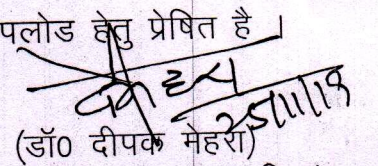 पलोड हेतु प्रेषित है।
25/11/19
(डॉ0 दीपक मेहरा)